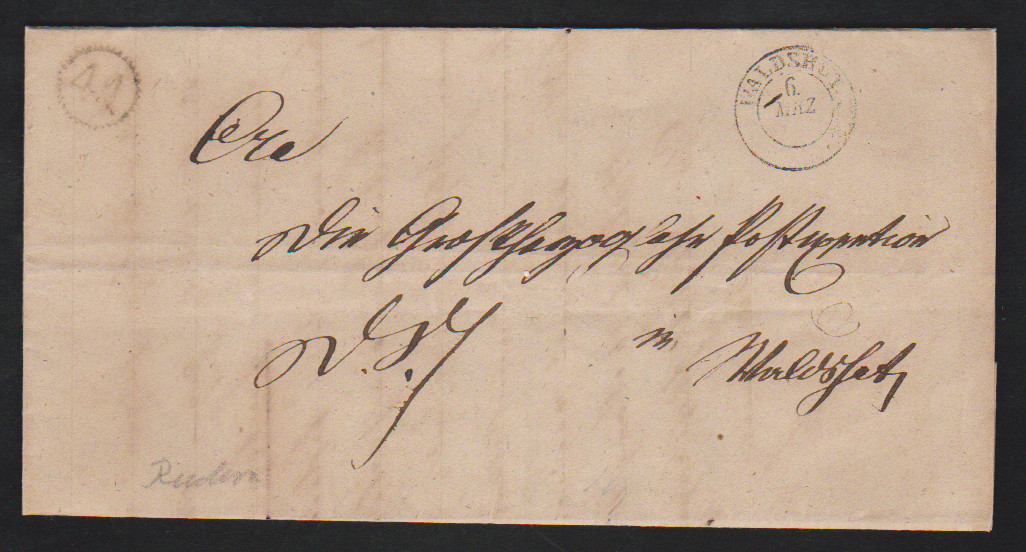 4.1
WALDSHUT
6.
MRZ
An
die Großherzogliche Postexpedition
D. S.
in
Waldshut